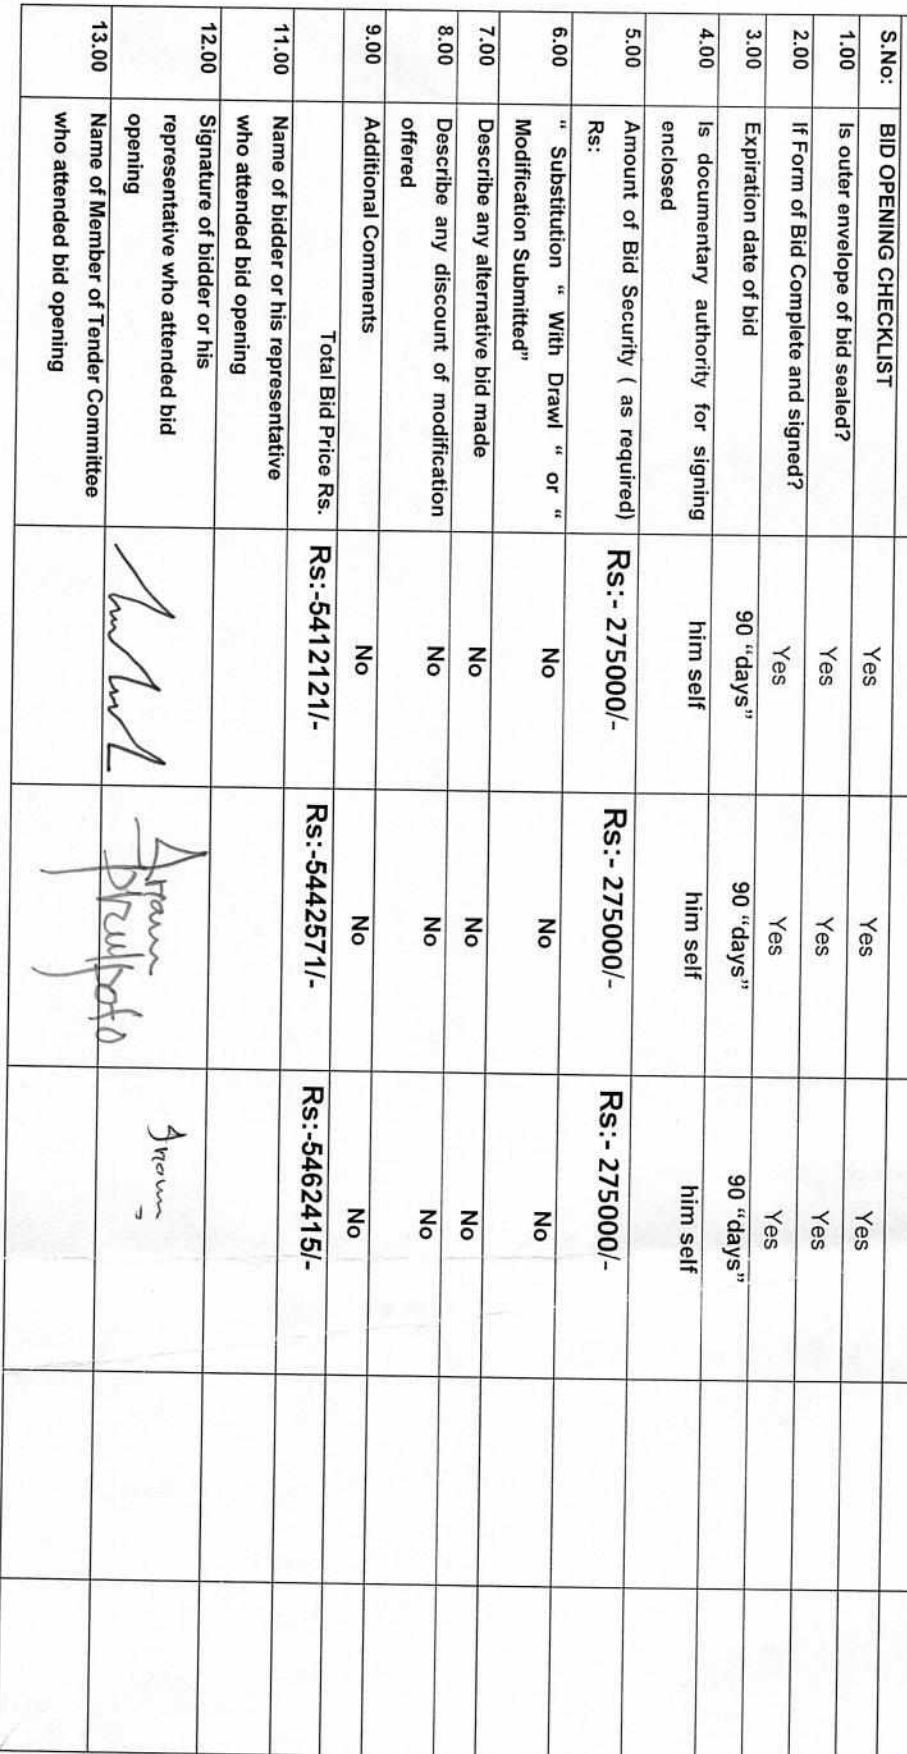 S.No: BID OPENING CHECKLIST Yes Yes Yes
1.00 Is outer envelope of bid sealed? Yes Yes Yes
2.00 If Form of Bid Complete and signed? Yes Yes Yes
3.00 Expiration date of bid 90 “days” 90 “days” 90 “days”
4.00 Is documentary authority for signing
enclosed him self him self him self
5.00 Amount of Bid Security ( as required)
Rs: Rs:- 275000/- Rs:- 275000/- Rs:- 275000/-
6.00 “ Substitution “ With Drawl “ or “
Modification Submitted” No No No
7.00 Describe any alternative bid made No No No
8.00 Describe any discount of modification
offered No No No
9.00 Additional Comments No No No
Total Bid Price Rs. Rs:-5412121/- Rs:-5442571/- Rs:-5462415/-
11.00 Name of bidder or his representative
who attended bid opening
12.00 Signature of bidder or his
representative who attended bid
opening
13.00 Name of Member of Tender Committee
who attended bid opening